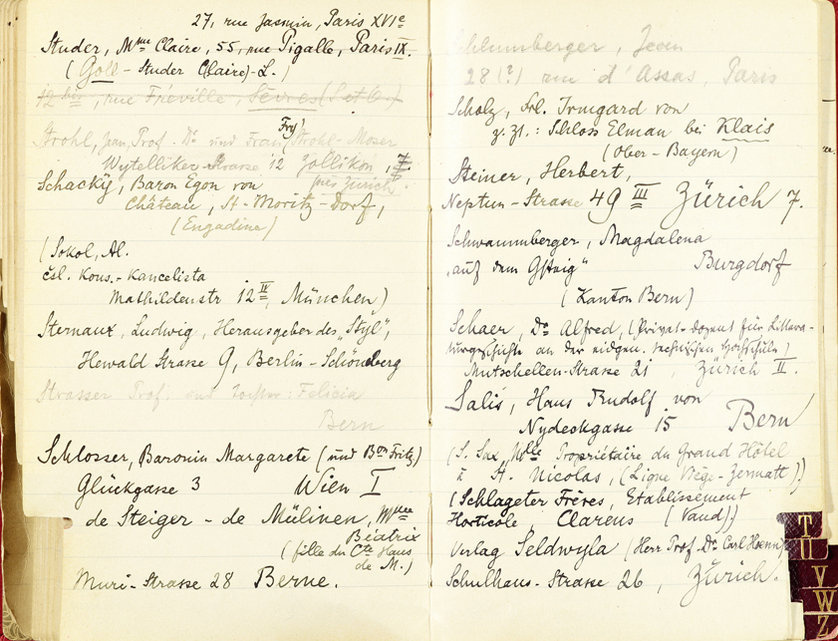 27, rue Jasmin, Paris XVIe
Studer, Mme Claire, 55, rue Pigalle, Paris IX.
(Goll - Studer Claire)-L.)
12 bis, rue Fréville, Sèvres (S et O.)
Fry!
Strohl, Jean, Prof. Dr. und Frau Strohl-Moser
Wytelliker-Strasse 12 Zollikon, 7.
(près Zurich).
Schacky, Baron Egon von
Château, St-Moritz-Dorf,
(Engadine)
(Sokol, Al.
čsl. Kons.-Kancelista
Mathildenstr 12 II, München)
Sternaux, Ludwig, Herausgeber des „Styl",
Hewald Strasse 9, Berlin-Schöneberg
Strasser Prof. und Tochter: Felicia
Bern
Schlosser, Baronin Margarete (und Bon Fritz)
Glückgasse 3 Wien I
de Steiger - de Mülinen, Mme
Béatrix
(fille du Cte Hans
de M.)
Muri-Strasse 28 Berne.
Schlumberger, Jean
28(?) rue d'Assas, Paris
Scholz, Frl. Irmgard von
z. Zt.: Schloss Elmau bei Klais
(Ober-Bayern)
Steiner, Herbert,
Neptun-Strasse 49 III Zürich 7.
Schwammberger, Magdalena
„auf dem Gsteig" Burgdorf
(Kanton Bern)
Schaer, Dr Alfred, (Privat-Dozent für Littera-
turgeschichte an der eidgen. technischen Hochschule)
Mutschellen-Strasse 21, Zürich II.
Salis, Hans Rudolf von
Nydeckgasse 15 Bern
(S. Sax, Mlle Propriétaire du Grand Hôtel
à St. Nicolas, (Ligne Viège-Zermatt))
(Schlageter Frères, Etablissement
Horticole, Clarens (Vaud))
Verlag Seldwyla (Herr Prof. Dr. Carl Hoenn)
Schulhaus-Strasse 26, Zürich.
T
U
V
W
Z